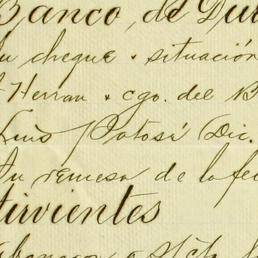 Banco, de Dur
Su cheque + situación
Herran + cgo. del B
Luis Potosí Dic.
Su remesa de la fe
Sirvientes